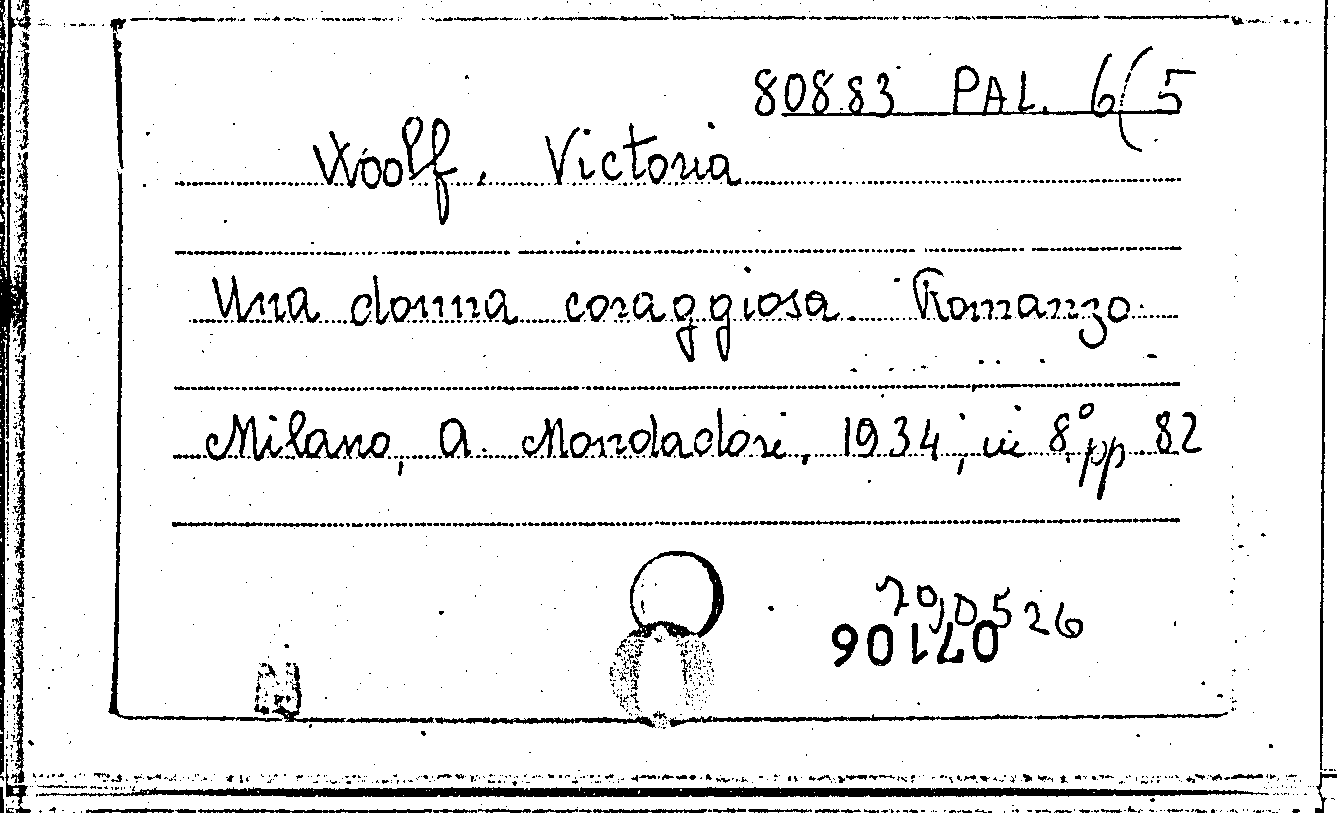 80883 PAL. 6(5
Woolf, Victoria
Una donna coraggiosa. Romanzo.
Milano, A. Mondadori, 1934, in 8° pp. 82
07106